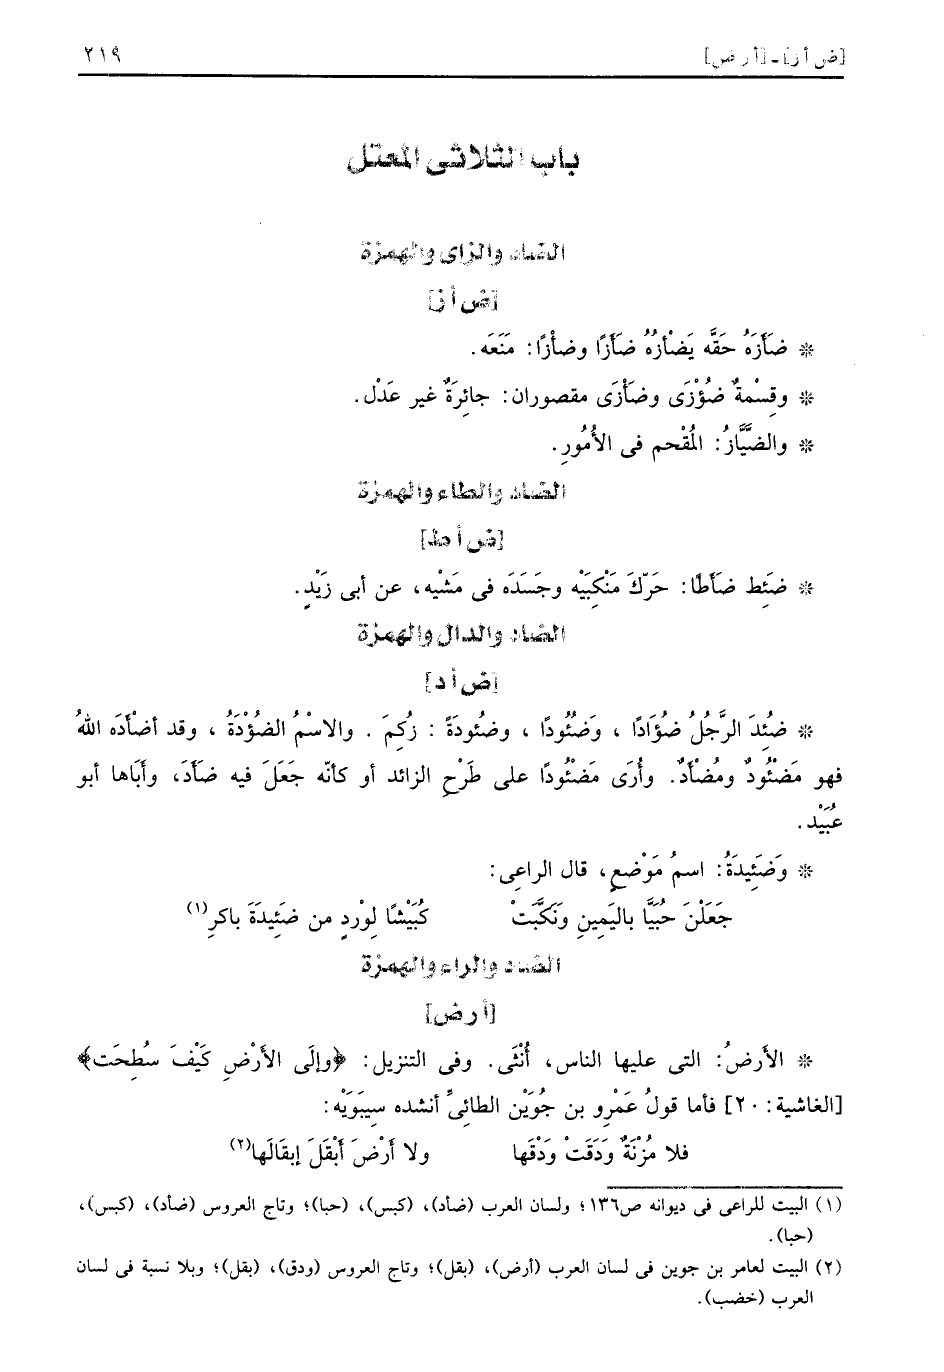 [ض أ ز] ـ [أ ر ض] ٢١٩
باب الثلاثى المعتل
الضاد والزاى والهمزة
[ض أ ز]
* ضَأَزَهُ حَقَّه يَضْأَزُهُ ضَأَزًا وضأْزًا: مَنَعَه.
* وقِسْمةٌ ضُؤْزَى وضَأْزَى مقصوران: جائرَةٌ غير عَدْل.
* والضَّيَّازُ: المُقْحم فى الأُمُورِ.
الضاد والطاء والهمزة
[ض أ ط]
* ضَئِط ضَأَطًا: حَرّكَ مَنْكِبَيْه وجَسَدَه فى مَشْيِه، عن أبى زَيْدٍ.
الضاد والدال والهمزة
[ض أ د]
* ضئِدَ الرَّجُلُ ضُؤَادًا ، وَضئُودًا ، وضئُودَةً : زُكِمَ . والاسْمُ الضؤْدَةُ ، وقد أضأدَه اللهُ
فهو مَضْئُودٌ ومُضْأَدٌ. وأُرَى مَضْئُودًا على طَرْحِ الزائد أو كأنّه جَعَلَ فيه ضَأَدَ، وأبَاها أبو
عُبَيْد.
* وَضَئِيدَةُ: اسمُ مَوْضعٍ، قال الراعِى:
جَعَلْنَ حُبَيَّا باليَمِينِ ونَكَّبَتْ كُبَيْشًا لوْرِدٍ من ضَئِيدَةَ باكرِ(١)
الضاد والراء والهمزة
[أ ر ض]
* الأرضُ: التى عليها الناس، أُنْثَى. وفى التنزيل: ﴿وإلَى الأَرْضِ كَيْفَ سُطِحَت﴾
[الغاشية: ٢٠] فأما قولُ عَمْرِو بن جُوَيْن الطائىِّ أنشده سيبَوَيْه:
فلا مُزْنَةٌ وَدَقَتْ وَدْقَها ولا أَرْضَ أَبْقَلَ إبقَالَها(٢)
(١) البيت للراعى فى ديوانه ص١٣٦؛ ولسان العرب (ضأد)، (كبس)، (حبا)؛ وتاج العروس (ضأد)، (كبس)،
(حبا).
(٢) البيت لعامر بن جوين فى لسان العرب (أرض)، (بقل)؛ وتاج العروس (ودق)، (بقل)؛ وبلا نسبة فى لسان
العرب (خضب).